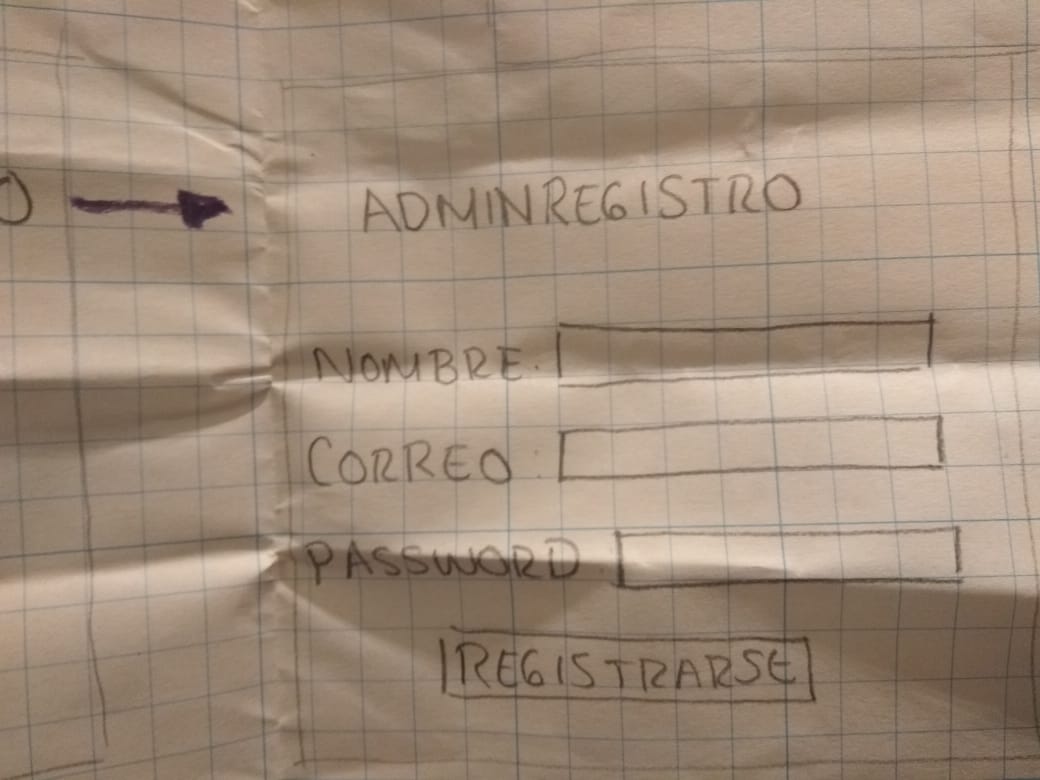 O
ADMINREGISTRO
NOMBRE.
CORREO :
PASSWORD
REGISTRARSE